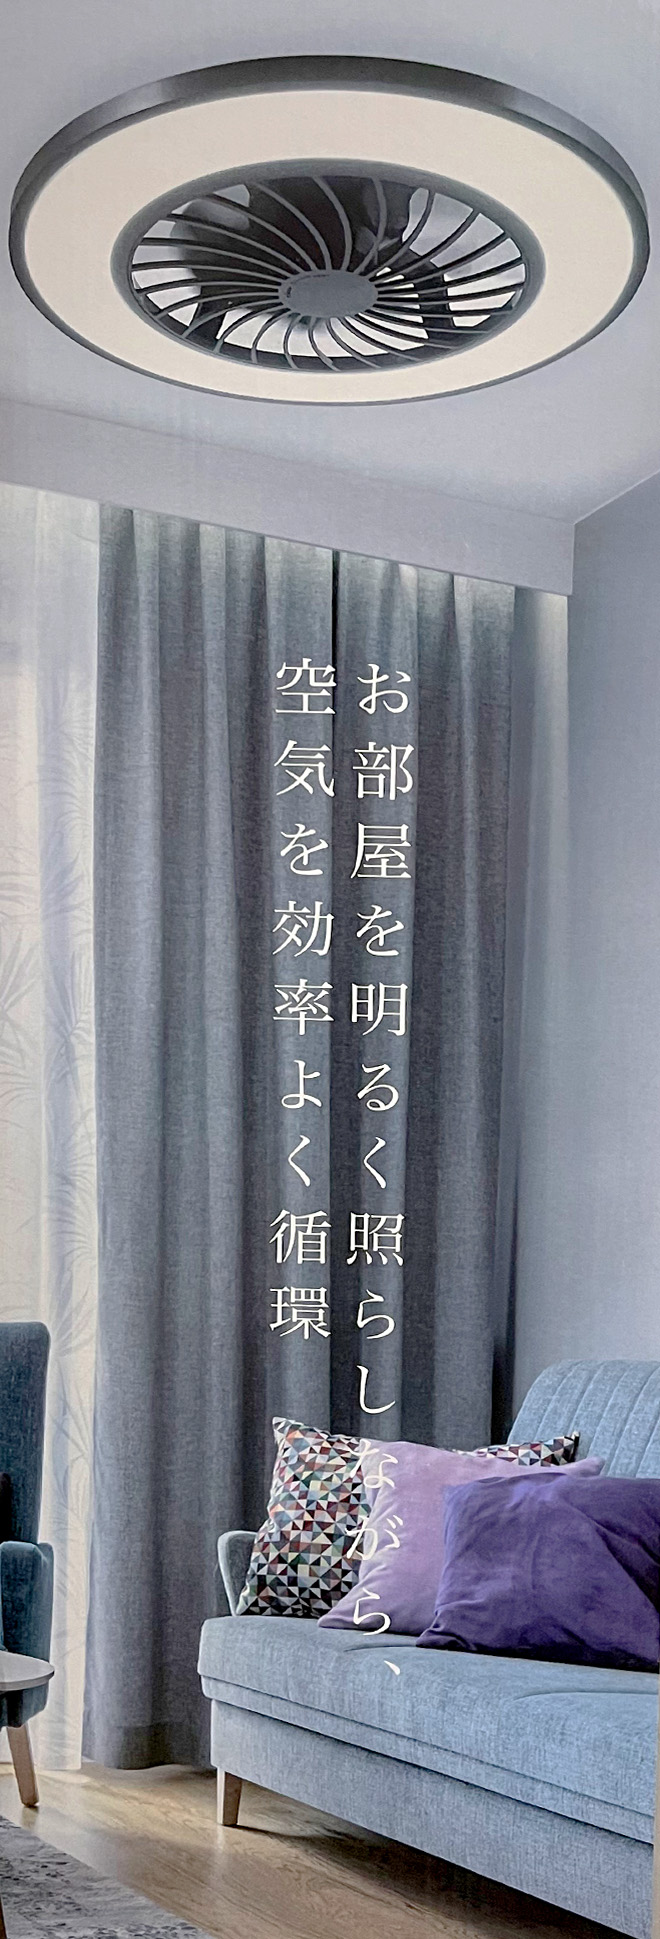 お部屋を明るく照らしながら、
空気を効率よく循環